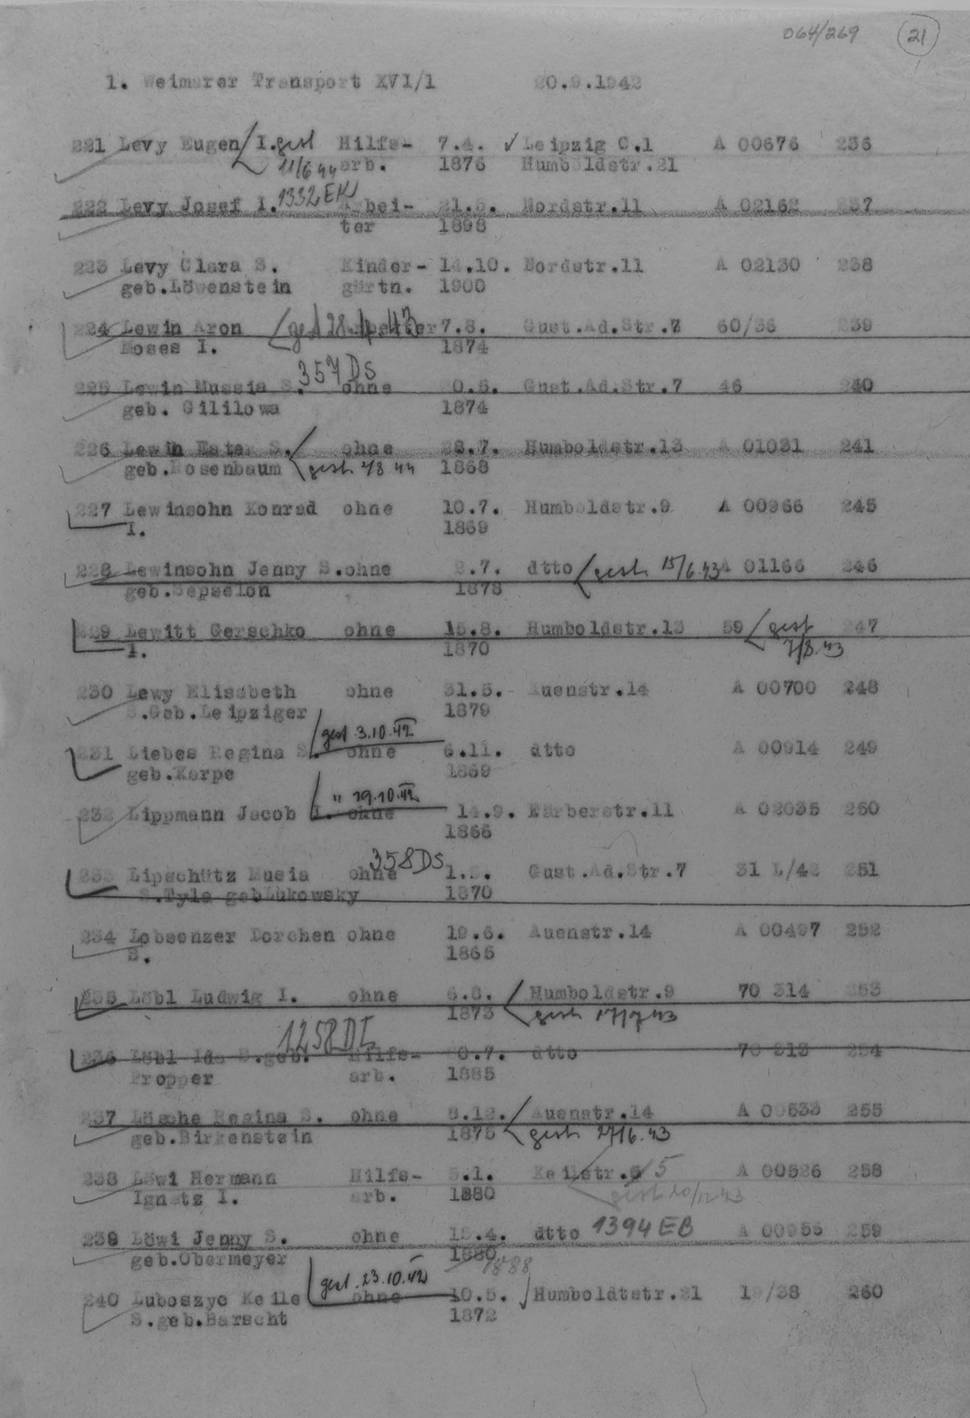 064/269 21
1. Weimarer Transport XVI/1 20.9.1942
221 Levy Eugen I. gest Hilfs- 7.4. Leipzig C.1 A 00676 236
11/6 44 arb. 1876 Humboldstr.21
222 Levy Josef I. 1332 EK Arbei- 21.5. Nordstr.11 A 02162 237
ter 1898
223 Levy Clara S. Kinder- 14.10. Nordstr.11 A 02130 238
geb.Löwenstein gärtn. 1900
224 Lewin Aron gest 28.4.43 7.8. Gust.Ad.Str.7 60/36 239
Moses I. 1874
357 DS
225 Lewin Mussia S. ohne 0.5. Gust.Ad.Str.7 46 240
geb. Gililowa 1874
226 Lewin Ester S. ohne 28.7. Humboldstr.13 A 01031 241
geb.Rosenbaum gest 7/3 44 1868
227 Lewinsohn Konrad ohne 10.7. Humboldstr.9 A 00966 245
I. 1869
228 Lewinsohn Jenny S.ohne 2.7. dtto gest 15/6.43 A 01166 246
geb.Sepselon 1878
229 Lewitt Gerschko ohne 15.8. Humboldstr.13 59 gest 247
I. 1870 7/8.43
230 Lewy Elisabeth ohne 31.5. Auenstr.14 A 00700 248
S.Geb.Leipziger 1879
gest.3.10.42
231 Liebes Regina S. ohne 6.11. dtto A 00914 249
geb.Karpe 1869
" 29.10.42
232 Lippmann Jacob I. ohne 14.9. Färberstr.11 A 02035 250
1866
358 DS
233 Lipschütz Musia ohne 1.5. Gust.Ad.Str.7 31 L/42 251
S.Tyla gebLukowsky 1870
234 Lobsenzer Dorchen ohne 19.6. Auenstr.14 A 00497 252
S. 1865
235 Löbl Ludwig I. ohne 6.8. Humboldstr.9 70 314 253
1873 gest 17/7 43
1258 DZ
236 Löbl Ida S.geb. Hilfs- 0.7. dtto 70 313 254
Propper arb. 1885
237 Lösche Regina S. ohne 8.12. Auenstr.14 A 00533 255
geb.Birkenstein 1875 gest 27/6.43
238 Löwi Hermann Hilfs- 5.1. Keilstr. 5 A 00526 258
Ignatz I. arb. 1880 gest 20/12 43
239 Löwi Jenny S. ohne 15.4. dtto 1394 EB A 00955 259
geb.Obermeyer 1880 1888
gest.23.10.42
240 Luboszyc Keile ohne 10.5. Humboldtstr.21 19/38 260
S.geb.Barscht 1872